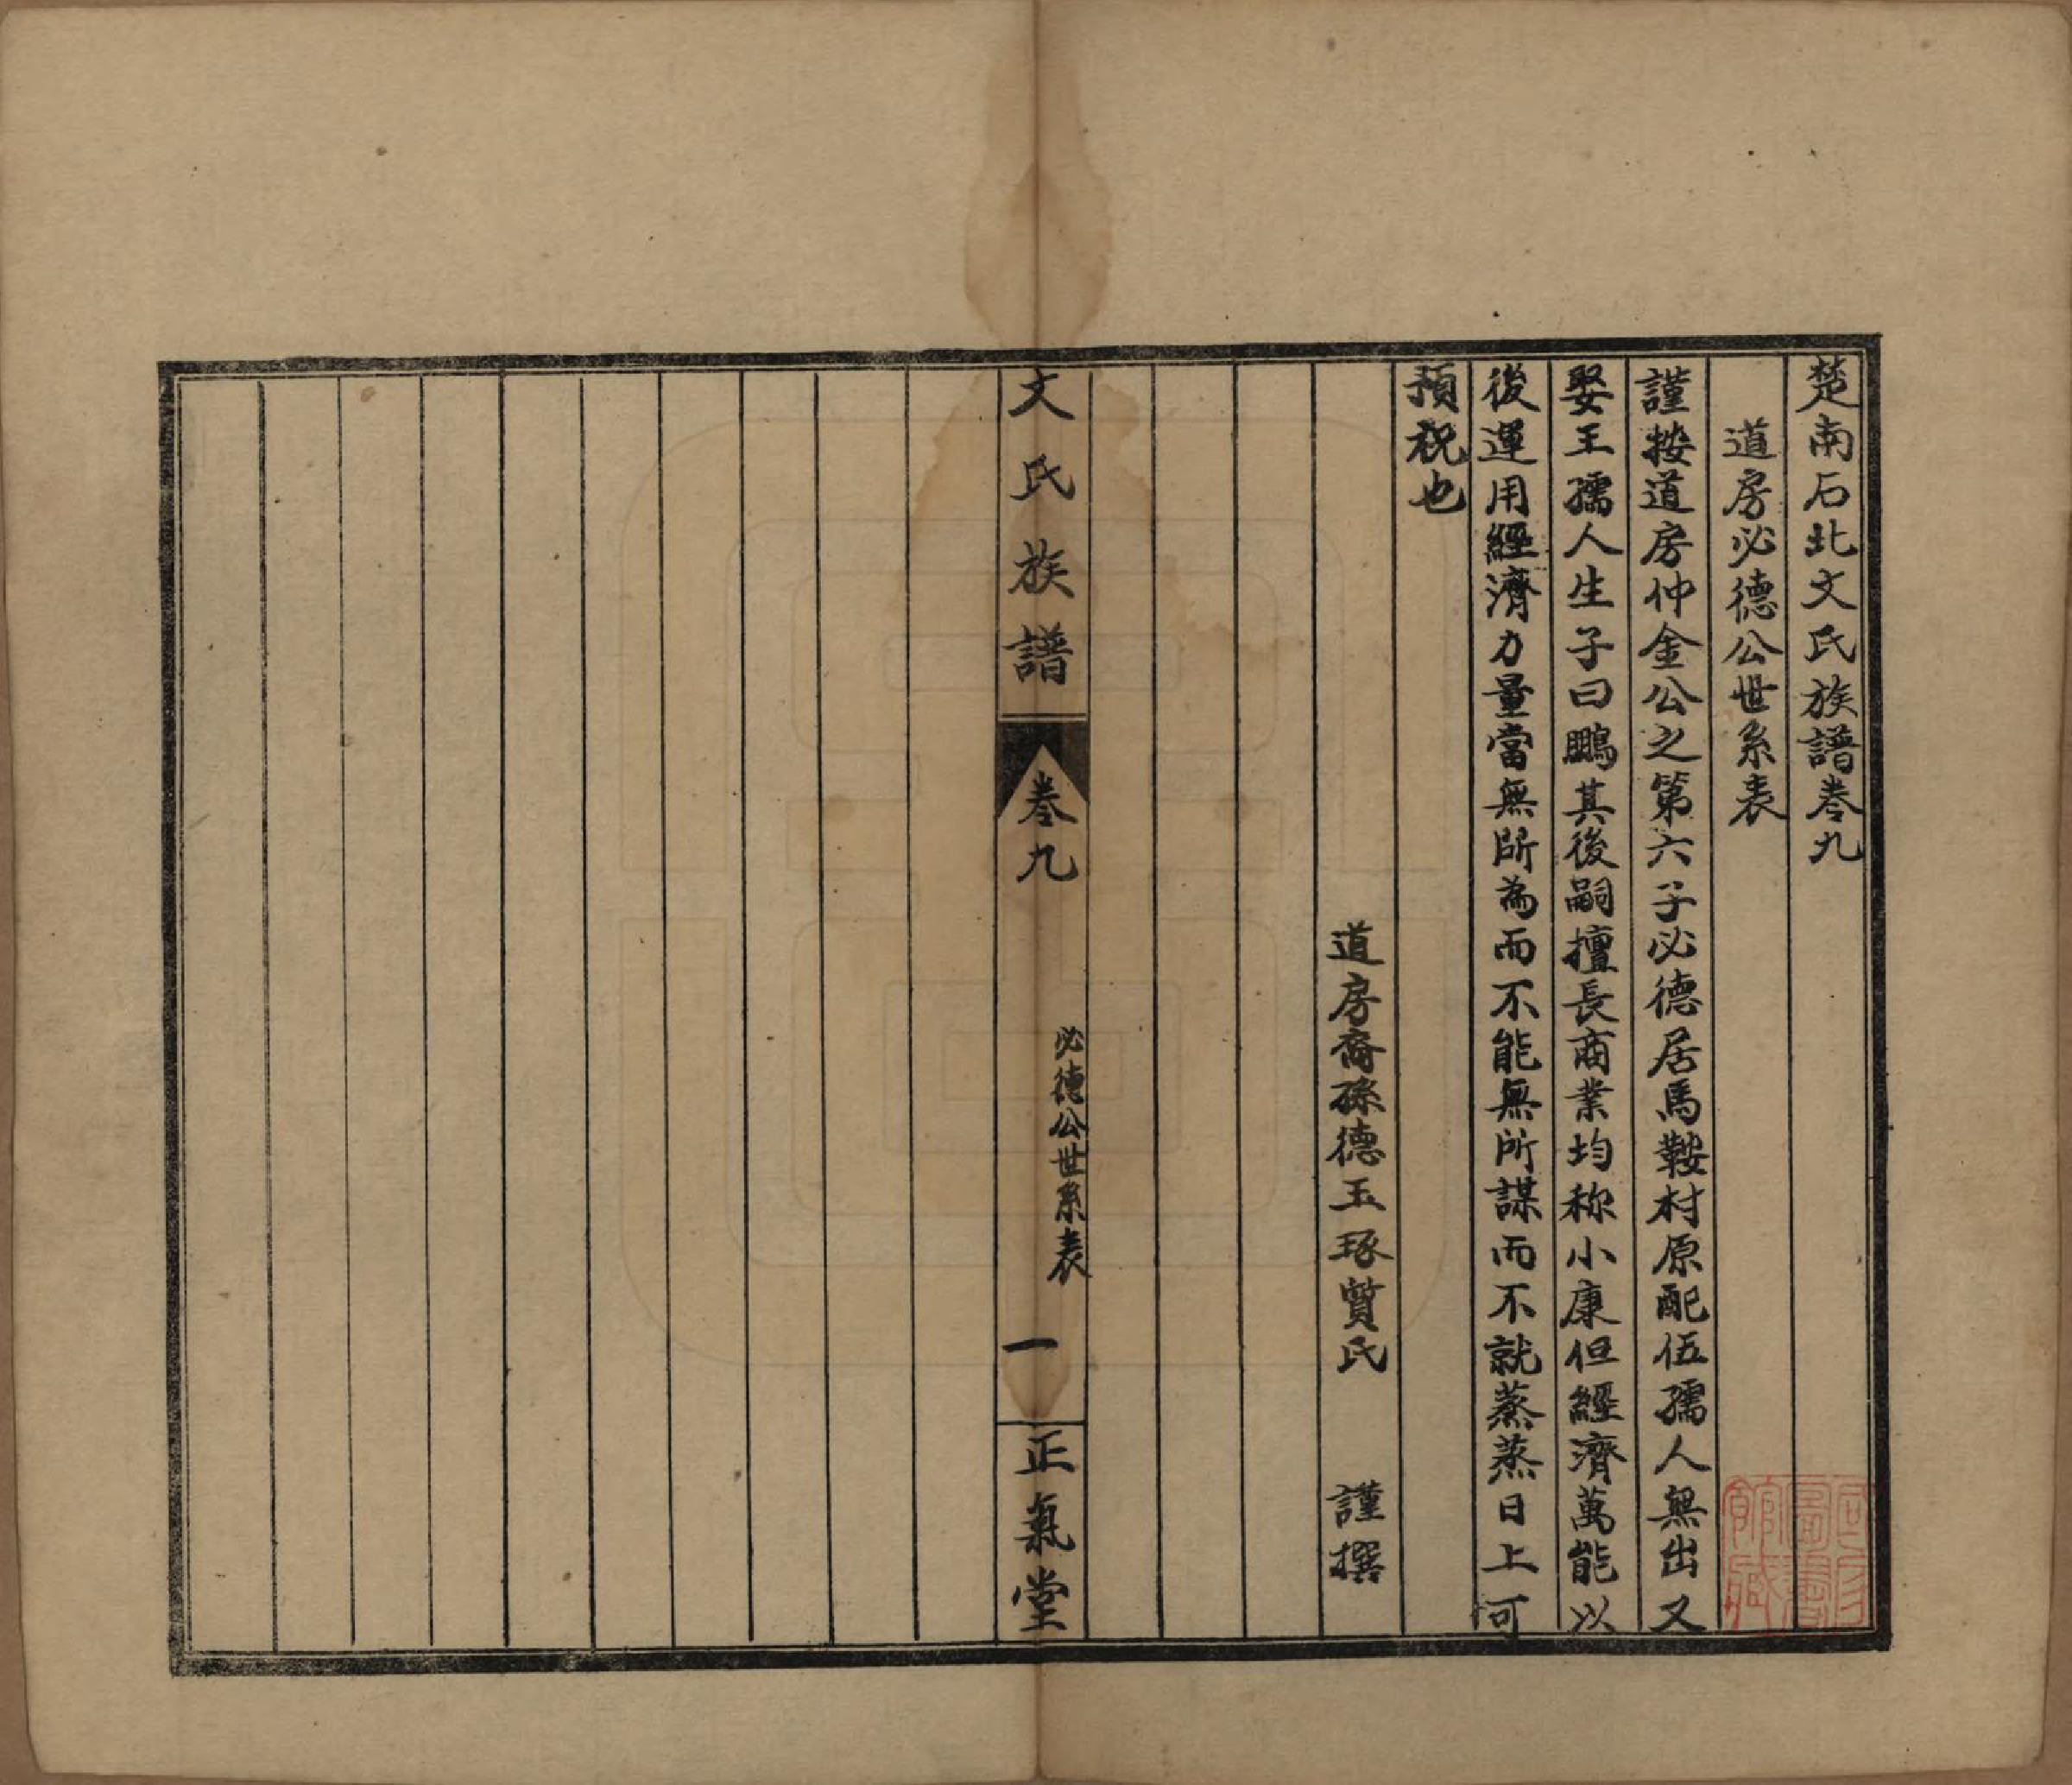 楚南石北文氏族譜卷九
道房必德公世系表
謹按道房仲金公之第六子必德居馬鞍村原配伍孺人無出又
娶王孺人生子曰鵬其後嗣擅長商業均称小康但經濟萬能以
後運用經濟力量當無所為而不能無所謀而不就蒸蒸日上可
預祝也
道房裔孫德玉琢質氏 謹撰
文氏族譜 卷九 必德公世系表 一 正氣堂
國家圖書館藏